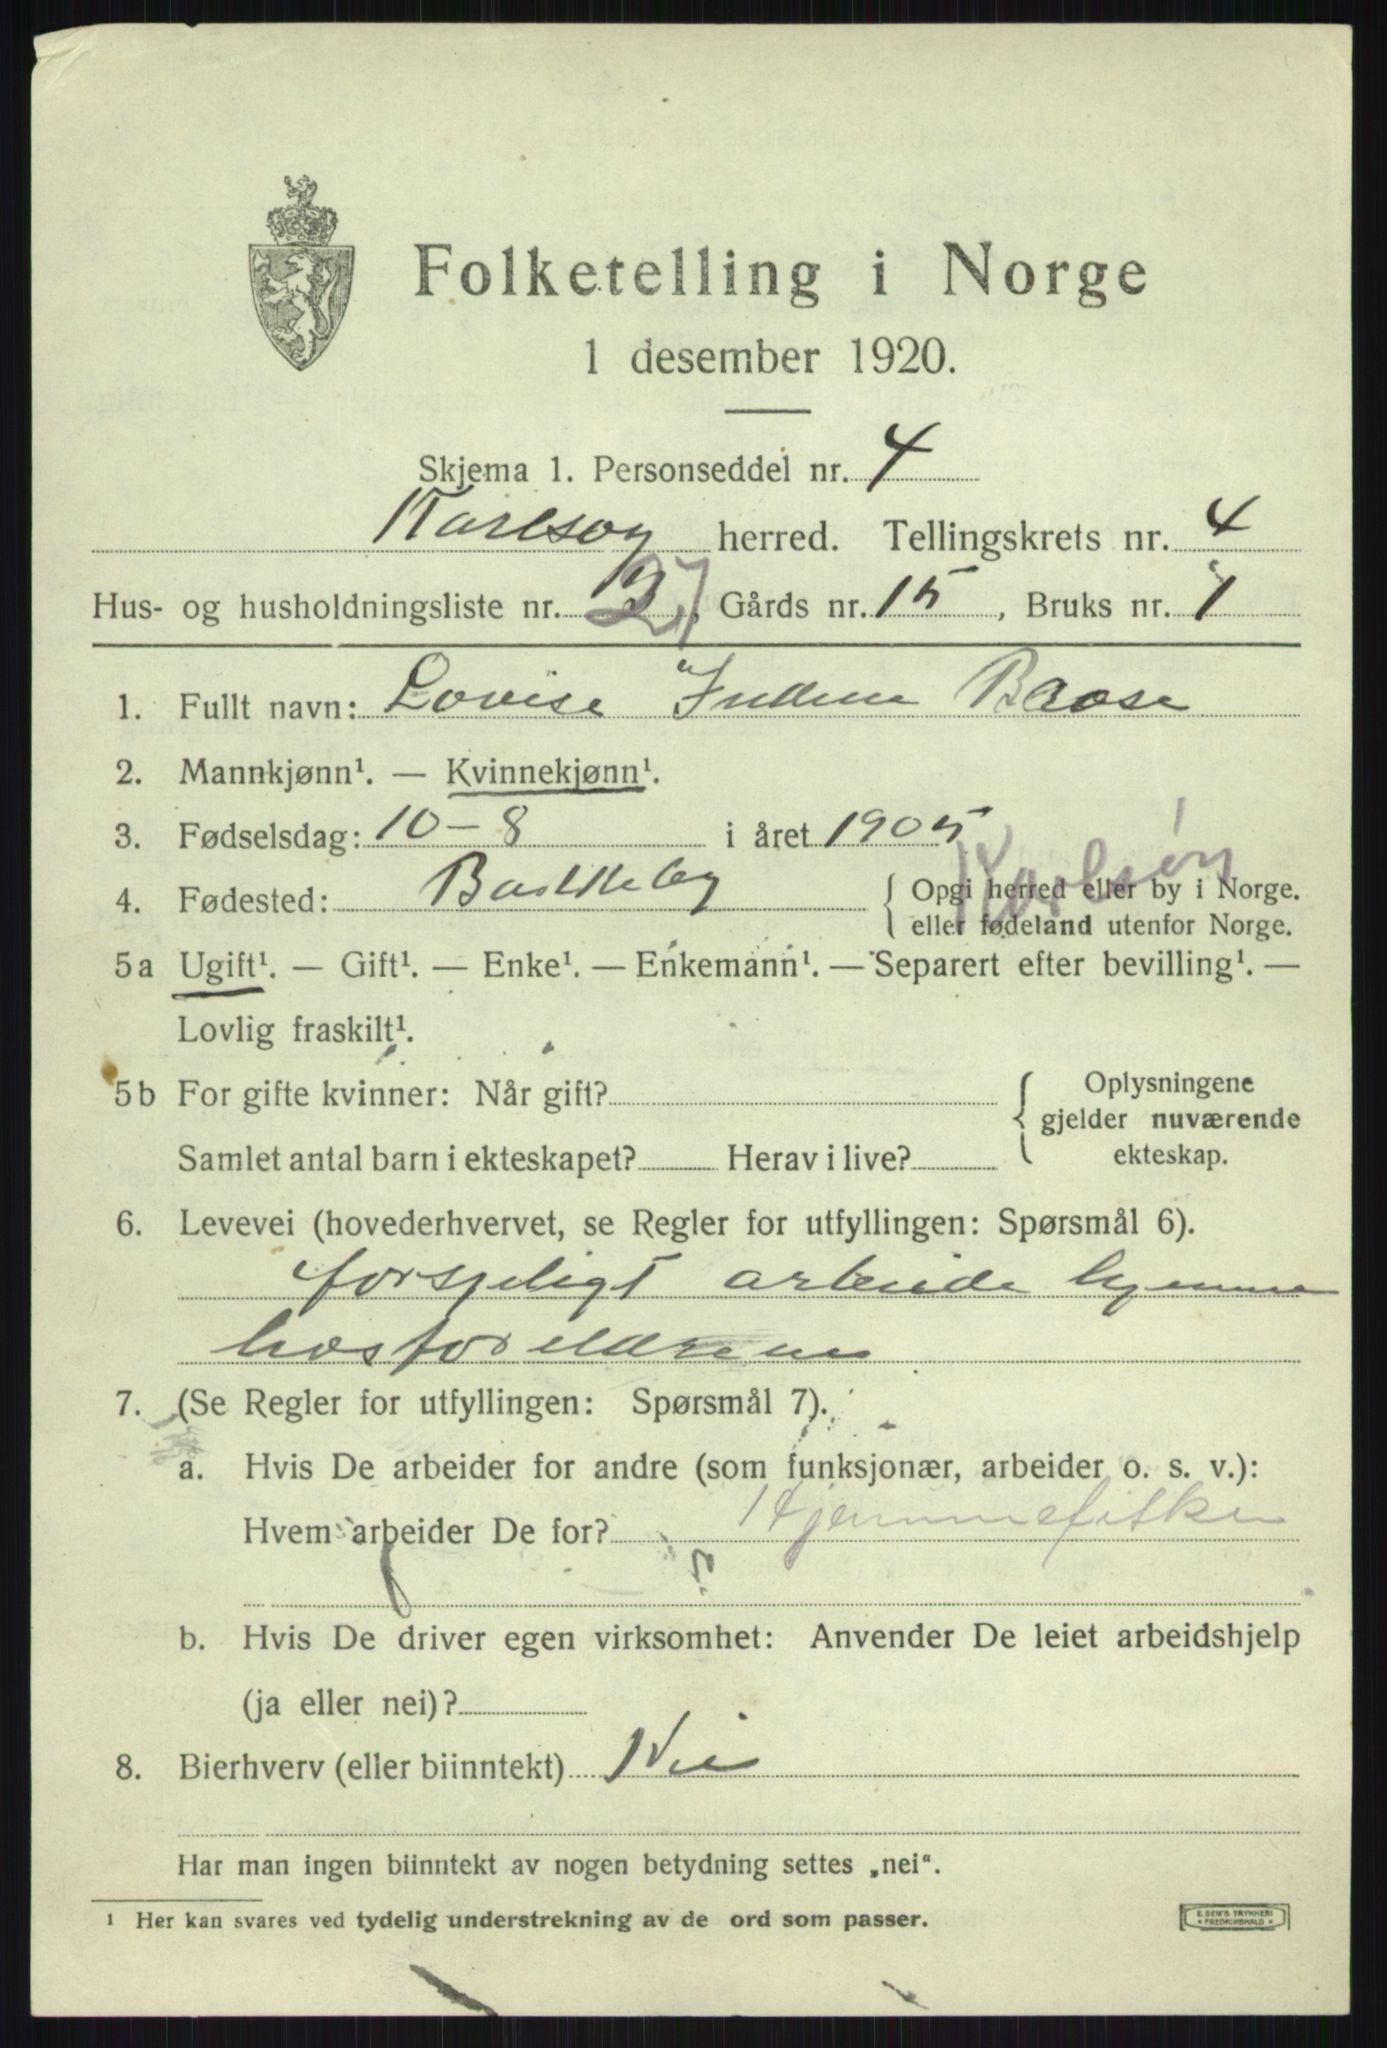 Folketelling i Norge
1 desember 1920.
Skjema 1. Personseddel nr. 4
Karlsøy herred. Tellingskrets nr. 4
Hus- og husholdningsliste nr. 27, Gårds nr. 15, Bruks nr. 1
1. Fullt navn: Lovise
2. Mannkjønn¹. — Kvinnekjønn¹.
3. Fødselsdag: 10-8 i året 1905
Karlsøy
4. Fødested: { Opgi herred eller by i Norge.
eller fødeland utenfor Norge.
5a Ugift¹. — Gift¹. — Enke¹. — Enkemann¹. — Separert efter bevilling¹. —
Lovlig fraskilt¹.
5b For gifte kvinner: Når gift? { Oplysningene
gjelder nuværende
Samlet antal barn i ekteskapet? Herav i live? ekteskap.
6. Levevei (hovederhvervet, se Regler for utfyllingen: Spørsmål 6).
forsjeligt arbeide hjemme
hos foreldrene
7. (Se Regler for utfyllingen: Spørsmål 7).
a. Hvis De arbeider for andre (som funksjonær, arbeider o. s. v.):
Hvem arbeider De for?
b. Hvis De driver egen virksomhet: Anvender De leiet arbeidshjelp
(ja eller nei)?
8. Bierhverv (eller biinntekt) Nei
Har man ingen biinntekt av nogen betydning settes „nei“.
¹ Her kan svares ved tydelig understrekning av de ord som passer.
E. SEM'S TRYKKERI
FREDRIKSHALD